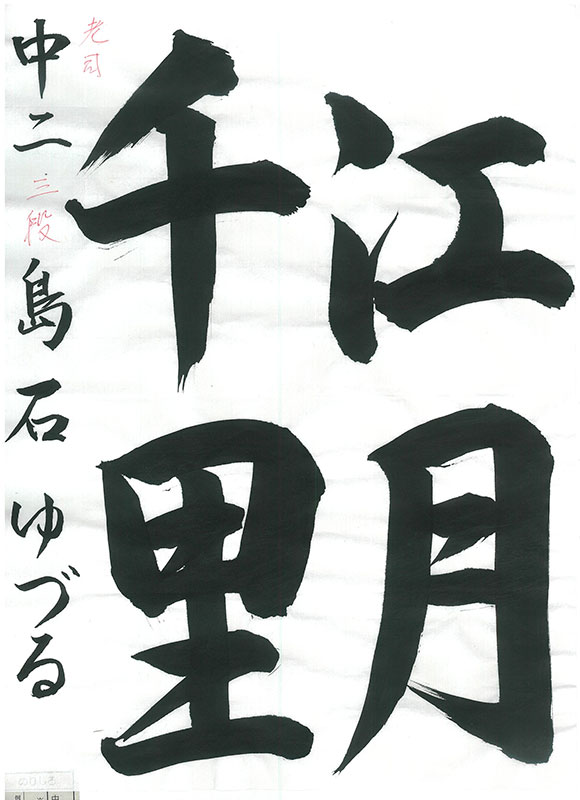 江月
千里
老司
中二 三段 島石 ゆづる